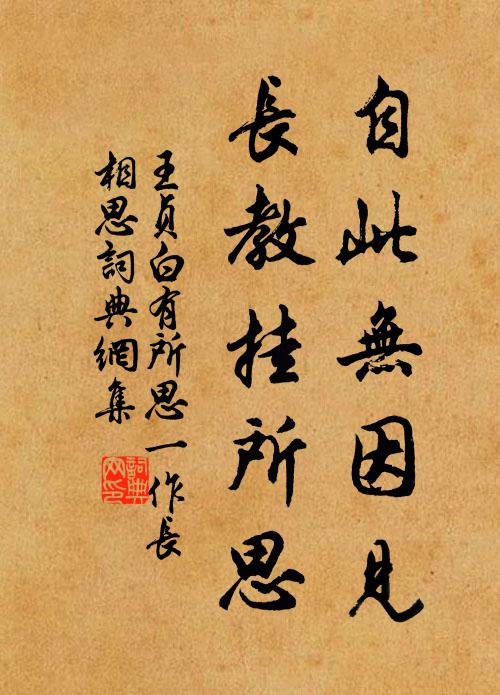 自此無因見
長教挂所思
王貞白有所思一作長
相思詞典網集
詞典
网印